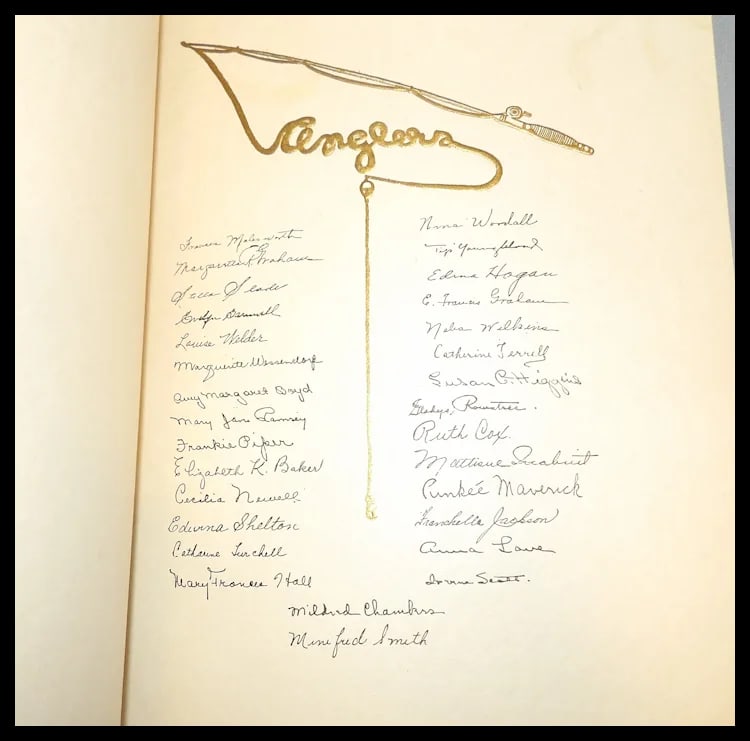 Anglers
Frances Molesworth
Margaret Graham
Sara Slade
Evelyn
Louise Wilder
Marguerite Wessendorf
Amy Margaret Boyd
Mary Jane Ramsey
Frankie Piper
Elizabeth K. Baker
Cecilia Newell
Edwina Shelton
Catharine Turchell
Mary Frances Hall
Nina Wordall
Youngblood
Edina Hogan
E. Frances Graham
Neba Wilkins
Catherine Terrell
Susan C. Higgins
Gladys Rowntree.
Ruth Cox.
Mattisue
Punkée Maverick
Franchelle Jackson
Anna Love
Scott.
Mildred Chambers
Minifred Smith